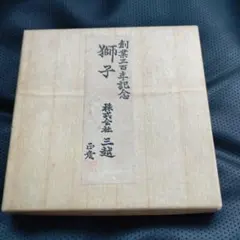 創業三百年記念
獅子
株式会社 三越